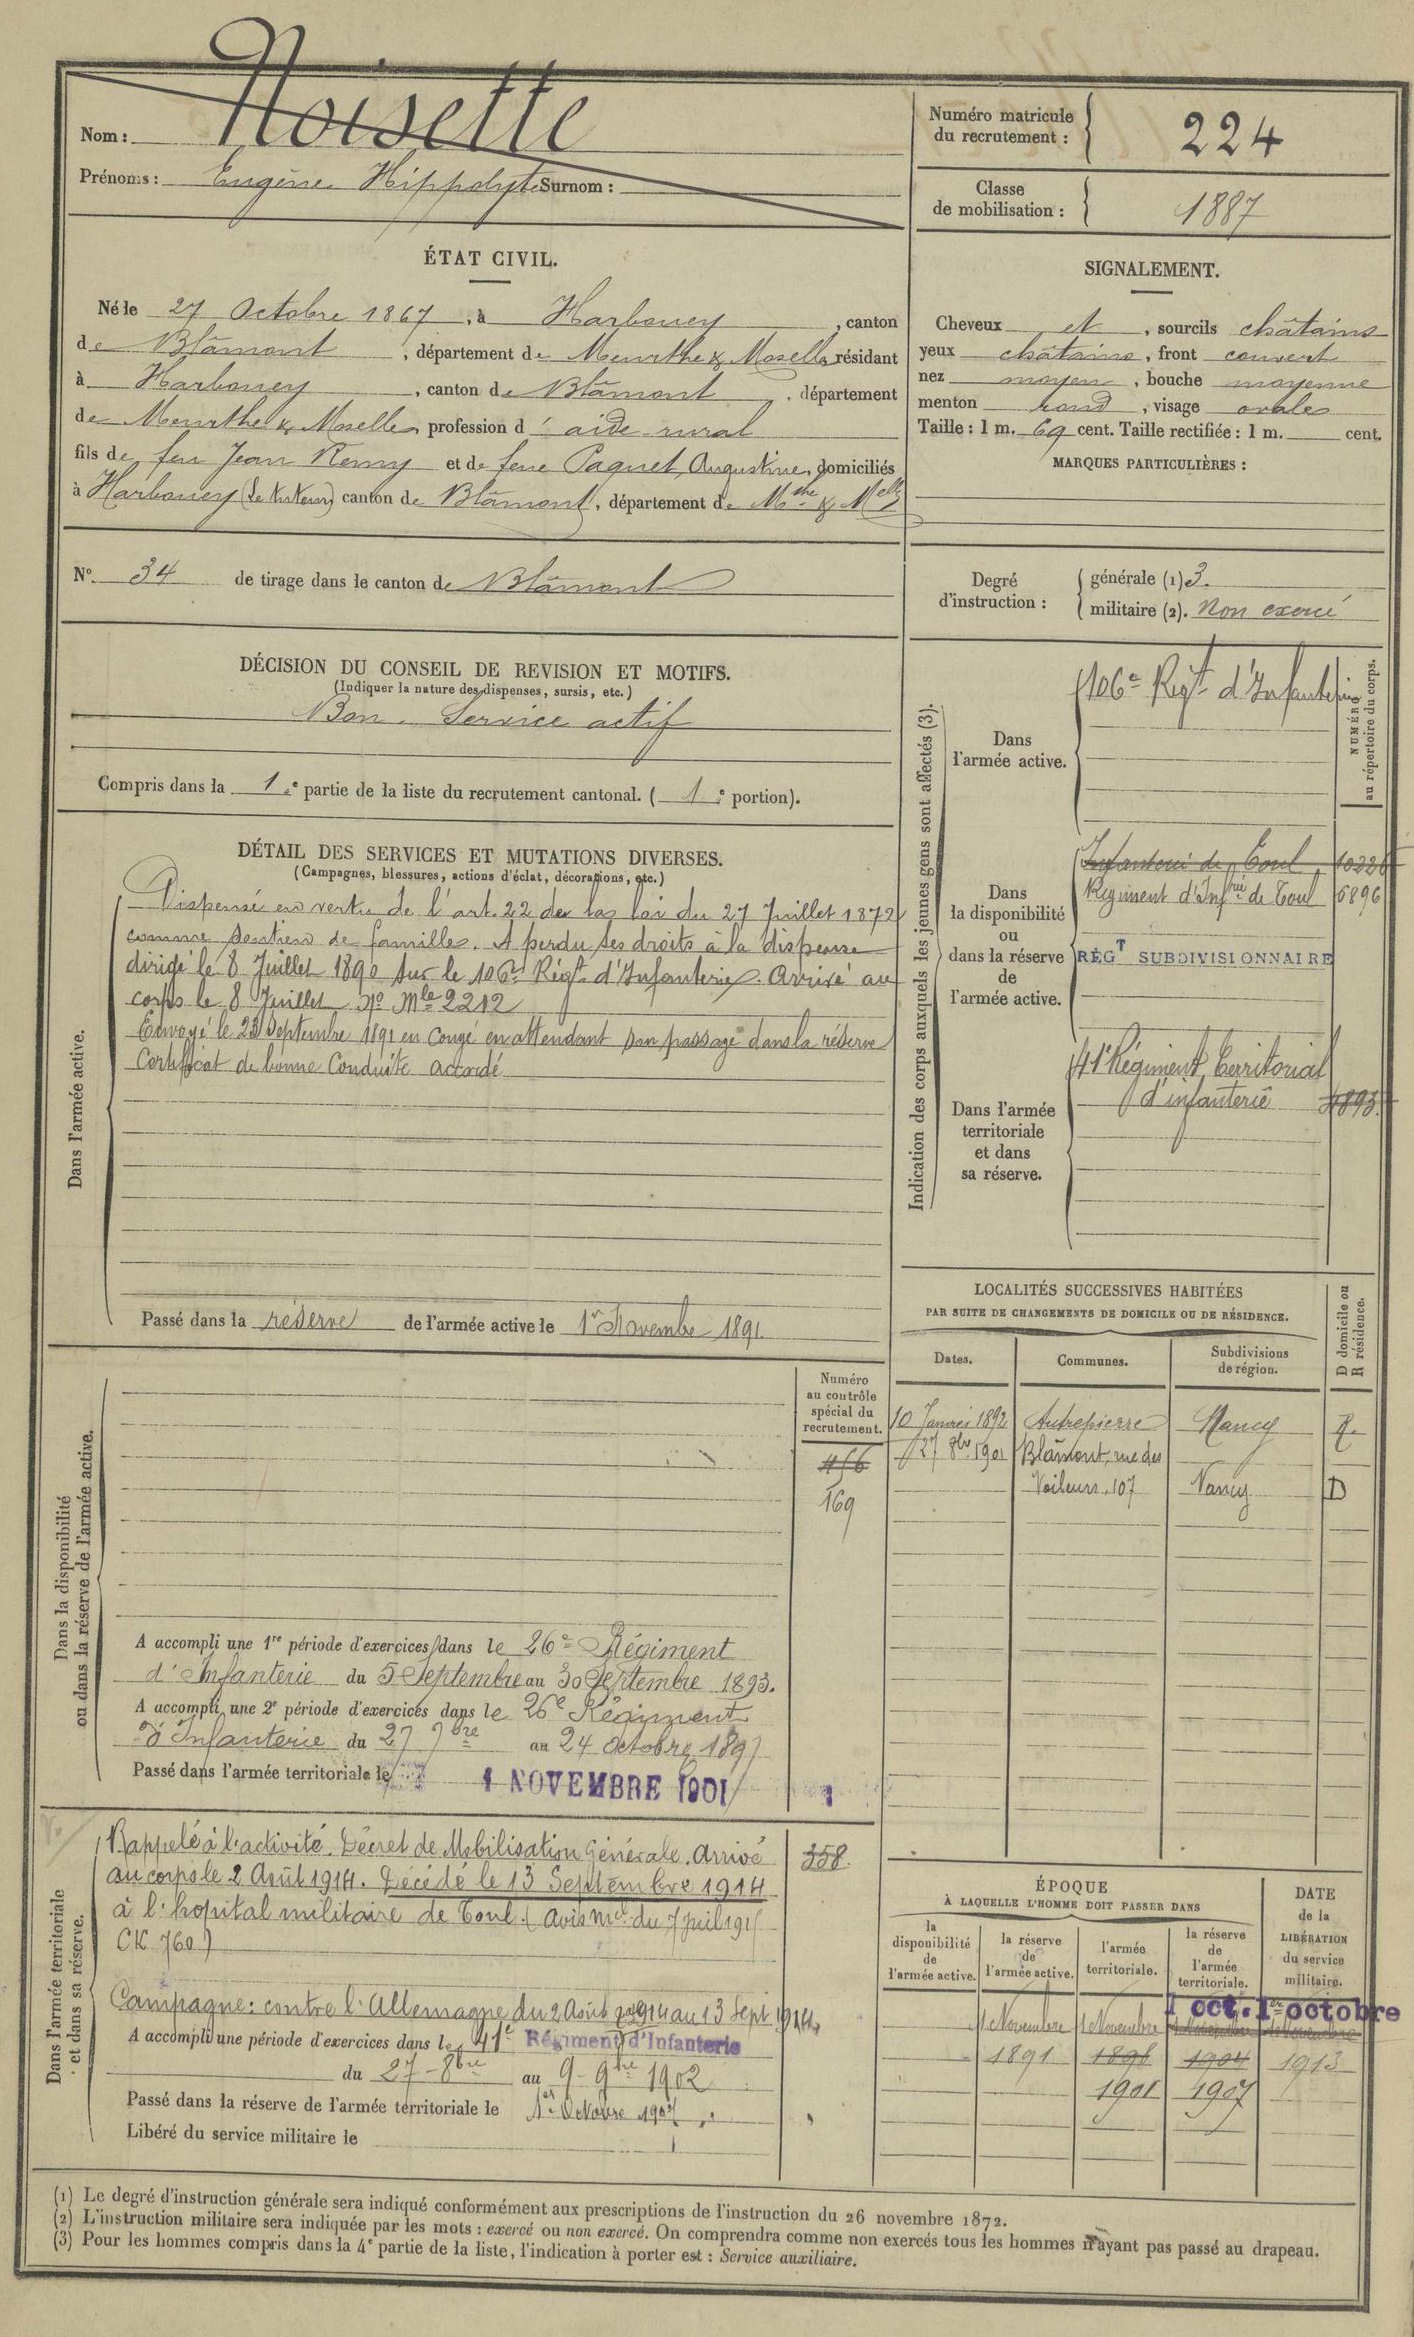 Nom : Noisette
Prénoms : Eugène Hippolyte Surnom :
Numéro matricule
du recrutement : 224
Classe
de mobilisation : 1887
ÉTAT CIVIL.
Né le 27 Octobre 1867, à Harbouey, canton
de Blâmont, département de Meurthe & Moselle, résidant
à Harbouey, canton de Blâmont, département
de Meurthe & Moselle, profession d'aide rural
fils de feu Jean Remy et de feue Paquet, Augustine, domiciliés
à Harbouey canton de Blâmont, département de Mthe & Mlle
SIGNALEMENT.
Cheveux et, sourcils châtains
yeux châtains, front couvert
nez moyen, bouche moyenne
menton rond, visage ovale
Taille : 1 m. 69 cent. Taille rectifiée : 1 m. cent.
MARQUES PARTICULIÈRES :
N° 34 de tirage dans le canton de Blâmont
Degré
d'instruction :
générale (1) 3.
militaire (2). Non exercé
DÉCISION DU CONSEIL DE REVISION ET MOTIFS.
(Indiquer la nature des dispenses, sursis, etc.)
Bon. Service actif
Compris dans la 1e partie de la liste du recrutement cantonal. (1e portion).
DÉTAIL DES SERVICES ET MUTATIONS DIVERSES.
(Campagnes, blessures, actions d'éclat, décorations, etc.)
Dans l'armée active.
Dispensé en vertu de l'art. 22 de la loi du 27 Juillet 1872
comme soutien de famille. A perdu ses droits à la dispense
dirigé le 8 Juillet 1890 sur le 106e Régt d'Infanterie. Arrivé au
corps le 8 Juillet No Mle 2212
Envoyé le 23 Septembre 1891 en congé en attendant son passage dans la réserve
Certificat de bonne Conduite accordé
Passé dans la réserve de l'armée active le 1er Novembre 1891
Indication des corps auxquels les jeunes gens sont affectés (3).
NUMÉRO
au répertoire du corps.
Dans
l'armée active.
106e Régt d'Infanterie
Dans
la disponibilité
ou
dans la réserve
de
l'armée active.
Infanterie de Toul 10226
Régiment d'Infrie de Toul 6896
RÉGT SUBDIVISIONNAIRE
Dans l'armée
territoriale
et dans
sa réserve.
41e Régiment Territorial
d'infanterie 4893
LOCALITÉS SUCCESSIVES HABITÉES
PAR SUITE DE CHANGEMENTS DE DOMICILE OU DE RÉSIDENCE.
D domicile ou
R résidence.
Dates. Communes. Subdivisions
de région.
10 Janvier 1892 Autrepierre Nancy R.
27 8bre 1901 Blâmont, rue des
Voileurs, 107 Nancy D
Dans la disponibilité
ou dans la réserve de l'armée active.
Numéro
au contrôle
spécial du
recrutement.
456
169
A accompli une 1re période d'exercices dans le 26e Régiment
d'Infanterie du 5 Septembre au 30 Septembre 1893.
A accompli une 2e période d'exercices dans le 26e Régiment
d'Infanterie du 27 7bre au 24 octobre 1897
Passé dans l'armée territoriale le 1 NOVEMBRE 1901 1
Dans l'armée territoriale
et dans sa réserve.
Rappelé à l'activité. Décret de Mobilisation Générale. Arrivé 358.
au corps le 2 Août 1914. Décédé le 13 Septembre 1914
à l'hopital militaire de Toul. (Avis mel du 7 juil 1915
CK 760)
Campagne : contre l'Allemagne du 2 Août 1914 au 13 Sept 1914
A accompli une période d'exercices dans le 41e Régiment d'Infanterie
du 27 - 8bre au 9 - 9bre 1902
Passé dans la réserve de l'armée territoriale le 1er Octobre 1907
Libéré du service militaire le
ÉPOQUE
À LAQUELLE L'HOMME DOIT PASSER DANS
DATE
de la
LIBÉRATION
du service
militaire.
la
disponibilité
de
l'armée active.
la réserve
de
l'armée active.
l'armée
territoriale.
la réserve
de
l'armée
territoriale.
1 oct. 1er octobre
1 Novembre 1 Novembre 1 Novembre 1 Novembre
1891 1898 1904 1913
1901 1907
(1) Le degré d'instruction générale sera indiqué conformément aux prescriptions de l'instruction du 26 novembre 1872.
(2) L'instruction militaire sera indiquée par les mots : exercé ou non exercé. On comprendra comme non exercés tous les hommes n'ayant pas passé au drapeau.
(3) Pour les hommes compris dans la 4e partie de la liste, l'indication à porter est : Service auxiliaire.